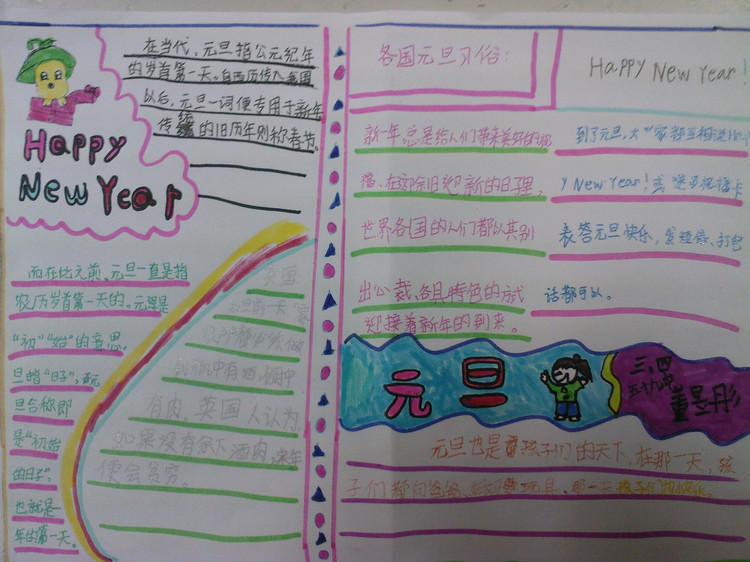 在当代，元旦指公元纪年
的岁首第一天。自西历传入我国
以后，元旦一词便专用于新年，
传统的旧历年则称春节。
Happy
New Year
而在此之前，元旦一直是指
农历岁首第一天的。元是
“初”“始”的意思。
旦指“日子”，
旦合称即
是“初始
的日子”，
也就是一
年的第一天。
英国
元旦前一天
瓶中有酒，橱中
有肉。英国人认为，
如果没有余下酒肉，来年
便会贫穷。
各国元旦习俗：
新一年总是给人们带来美好的祝
福。在这除旧迎新的日子里，
世界各国的人们都以其别
出心裁、各具特色的方式
迎接着新年的到来。
HAPPY New YeaR!
到了元旦，大家都互相
y New Year! 或送祝福卡
表答元旦快乐，发短信、打电
话都可以。
元旦
三、四
董昱彤
元旦也是孩子们的天下，在那一天，孩
子们都向爸爸、妈妈要玩具，那一天孩子们的快乐。